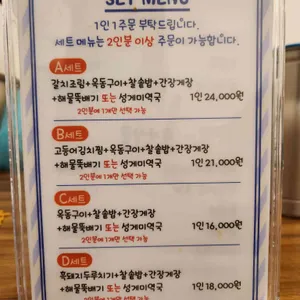 SET MENU
1인 1주문 부탁드립니다.
세트 메뉴는 2인분 이상 주문이 가능합니다.
A세트
갈치조림+옥돔구이+찰솥밥+간장게장
+해물뚝배기 또는 성게미역국 1인 24,000원
2인분에 1개만 선택 가능
B세트
고등어김치찜+옥돔구이+찰솥밥+간장게장
+해물뚝배기 또는 성게미역국 1인 21,000원
2인분에 1개만 선택 가능
C세트
옥돔구이+찰솥밥+간장게장
+해물뚝배기 또는 성게미역국 1인 16,000원
2인분에 1개만 선택 가능
D세트
흑돼지두루치기+찰솥밥+간장게장
+해물뚝배기 또는 성게미역국 1인 18,000원
2인분에 1개만 선택 가능